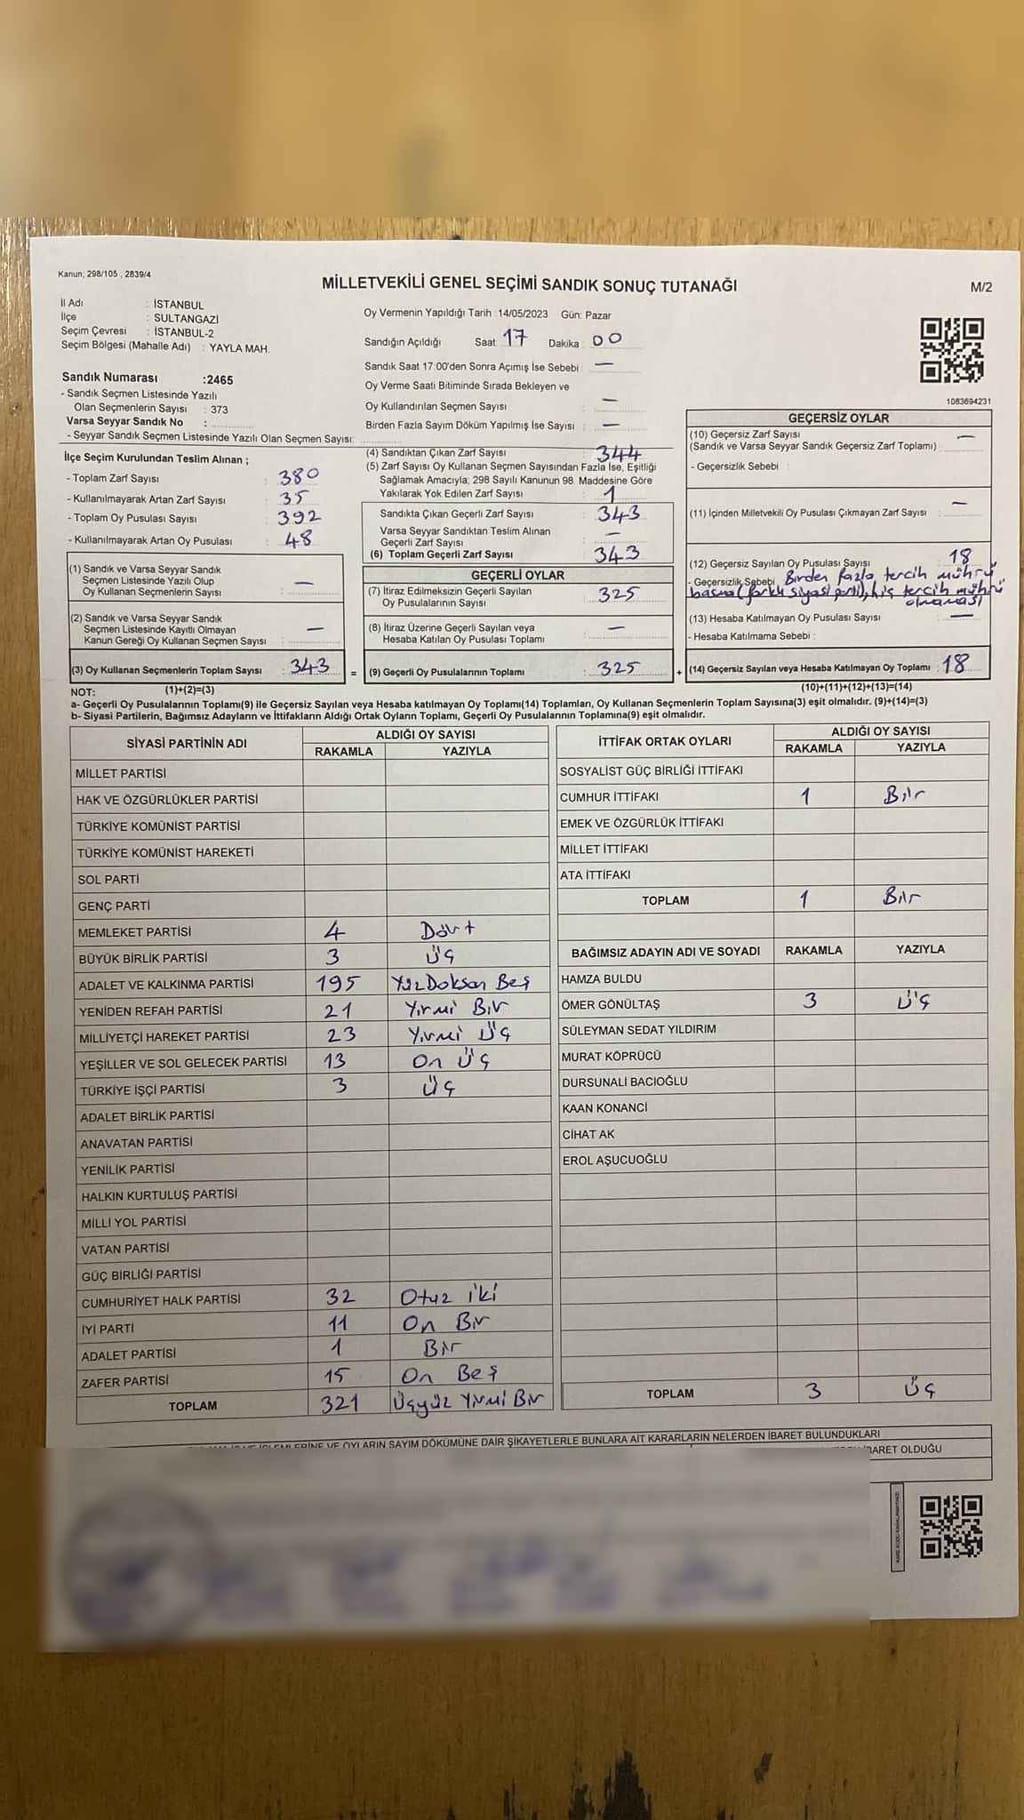 Kanun; 298/105 , 2839/4
MİLLETVEKİLİ GENEL SEÇİMİ SANDIK SONUÇ TUTANAĞI
M/2
İl Adı : İSTANBUL
İlçe : SULTANGAZİ
Seçim Çevresi : İSTANBUL-2
Seçim Bölgesi (Mahalle Adı) : YAYLA MAH.
Sandık Numarası :2465
- Sandık Seçmen Listesinde Yazılı
Olan Seçmenlerin Sayısı : 373
Varsa Seyyar Sandık No :
- Seyyar Sandık Seçmen Listesinde Yazılı Olan Seçmen Sayısı:
İlçe Seçim Kurulundan Teslim Alınan ;
- Toplam Zarf Sayısı : 380
- Kullanılmayarak Artan Zarf Sayısı : 35
- Toplam Oy Pusulası Sayısı : 392
- Kullanılmayarak Artan Oy Pusulası : 48
(1) Sandık ve Varsa Seyyar Sandık
Seçmen Listesinde Yazılı Olup
Oy Kullanan Seçmenlerin Sayısı : —
(2) Sandık ve Varsa Seyyar Sandık
Seçmen Listesinde Kayıtlı Olmayan
Kanun Gereği Oy Kullanan Seçmen Sayısı : —
(3) Oy Kullanan Seçmenlerin Toplam Sayısı : 343
Oy Vermenin Yapıldığı Tarih :14/05/2023 Gün: Pazar
Sandığın Açıldığı Saat: 17 Dakika : 00
Sandık Saat 17:00'den Sonra Açımış İse Sebebi : —
Oy Verme Saati Bitiminde Sırada Bekleyen ve
Oy Kullandırılan Seçmen Sayısı : —
Birden Fazla Sayım Döküm Yapılmış İse Sayısı : —
(4) Sandıktan Çıkan Zarf Sayısı : 344
(5) Zarf Sayısı Oy Kullanan Seçmen Sayısından Fazla İse, Eşitliği
Sağlamak Amacıyla; 298 Sayılı Kanunun 98. Maddesine Göre
Yakılarak Yok Edilen Zarf Sayısı : 1
Sandıkta Çıkan Geçerli Zarf Sayısı : 343
Varsa Seyyar Sandıktan Teslim Alınan
Geçerli Zarf Sayısı : —
(6) Toplam Geçerli Zarf Sayısı : 343
GEÇERLİ OYLAR
(7) İtiraz Edilmeksizin Geçerli Sayılan
Oy Pusulalarının Sayısı : 325
(8) İtiraz Üzerine Geçerli Sayılan veya
Hesaba Katılan Oy Pusulası Toplamı : —
= (9) Geçerli Oy Pusulalarının Toplamı : 325
1083694231
GEÇERSİZ OYLAR
(10) Geçersiz Zarf Sayısı : —
(Sandık ve Varsa Seyyar Sandık Geçersiz Zarf Toplamı)
- Geçersizlik Sebebi :
(11) İçinden Milletvekili Oy Pusulası Çıkmayan Zarf Sayısı : —
(12) Geçersiz Sayılan Oy Pusulası Sayısı : 18
- Geçersizlik Sebebi : Birden fazla tercih mührü
basma (farklı siyasi parti), hiç tercih mührü
olmaması
(13) Hesaba Katılmayan Oy Pusulası Sayısı : —
- Hesaba Katılmama Sebebi :
+ (14) Geçersiz Sayılan veya Hesaba Katılmayan Oy Toplamı : 18
NOT: (1)+(2)=(3) (10)+(11)+(12)+(13)=(14)
a- Geçerli Oy Pusulalarının Toplamı(9) ile Geçersiz Sayılan veya Hesaba katılmayan Oy Toplamı(14) Toplamları, Oy Kullanan Seçmenlerin Toplam Sayısına(3) eşit olmalıdır. (9)+(14)=(3)
b- Siyasi Partilerin, Bağımsız Adayların ve İttifakların Aldığı Ortak Oyların Toplamı, Geçerli Oy Pusulalarının Toplamına(9) eşit olmalıdır.
SİYASİ PARTİNİN ADI ALDIĞI OY SAYISI
RAKAMLA YAZIYLA
MİLLET PARTİSİ
HAK VE ÖZGÜRLÜKLER PARTİSİ
TÜRKİYE KOMÜNİST PARTİSİ
TÜRKİYE KOMÜNİST HAREKETİ
SOL PARTİ
GENÇ PARTİ
MEMLEKET PARTİSİ 4 Dört
BÜYÜK BİRLİK PARTİSİ 3 Üç
ADALET VE KALKINMA PARTİSİ 195 YüzDoksan Beş
YENİDEN REFAH PARTİSİ 21 Yirmi Bir
MİLLİYETÇİ HAREKET PARTİSİ 23 Yirmi Üç
YEŞİLLER VE SOL GELECEK PARTİSİ 13 On Üç
TÜRKİYE İŞÇİ PARTİSİ 3 Üç
ADALET BİRLİK PARTİSİ
ANAVATAN PARTİSİ
YENİLİK PARTİSİ
HALKIN KURTULUŞ PARTİSİ
MİLLİ YOL PARTİSİ
VATAN PARTİSİ
GÜÇ BİRLİĞİ PARTİSİ
CUMHURİYET HALK PARTİSİ 32 Otuz iki
İYİ PARTİ 11 On Bir
ADALET PARTİSİ 1 Bir
ZAFER PARTİSİ 15 On Beş
TOPLAM 321 Üçyüz Yirmi Bir
İTTİFAK ORTAK OYLARI ALDIĞI OY SAYISI
RAKAMLA YAZIYLA
SOSYALİST GÜÇ BİRLİĞİ İTTİFAKI
CUMHUR İTTİFAKI 1 Bir
EMEK VE ÖZGÜRLÜK İTTİFAKI
MİLLET İTTİFAKI
ATA İTTİFAKI
TOPLAM 1 Bir
BAĞIMSIZ ADAYIN ADI VE SOYADI RAKAMLA YAZIYLA
HAMZA BULDU
ÖMER GÖNÜLTAŞ 3 Üç
SÜLEYMAN SEDAT YILDIRIM
MURAT KÖPRÜCÜ
DURSUNALİ BACIOĞLU
KAAN KONANCİ
CİHAT AK
EROL AŞUCUOĞLU
TOPLAM 3 Üç
VE OYLARIN SAYIM DÖKÜMÜNE DAİR ŞİKAYETLERLE BUNLARA AİT KARARLARIN NELERDEN İBARET BULUNDUKLARI
OLDUĞU